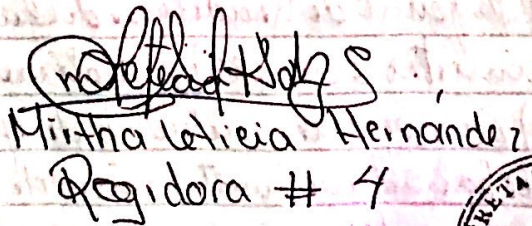 Mirtha Leticia Hernández
Regidora # 4
RETA